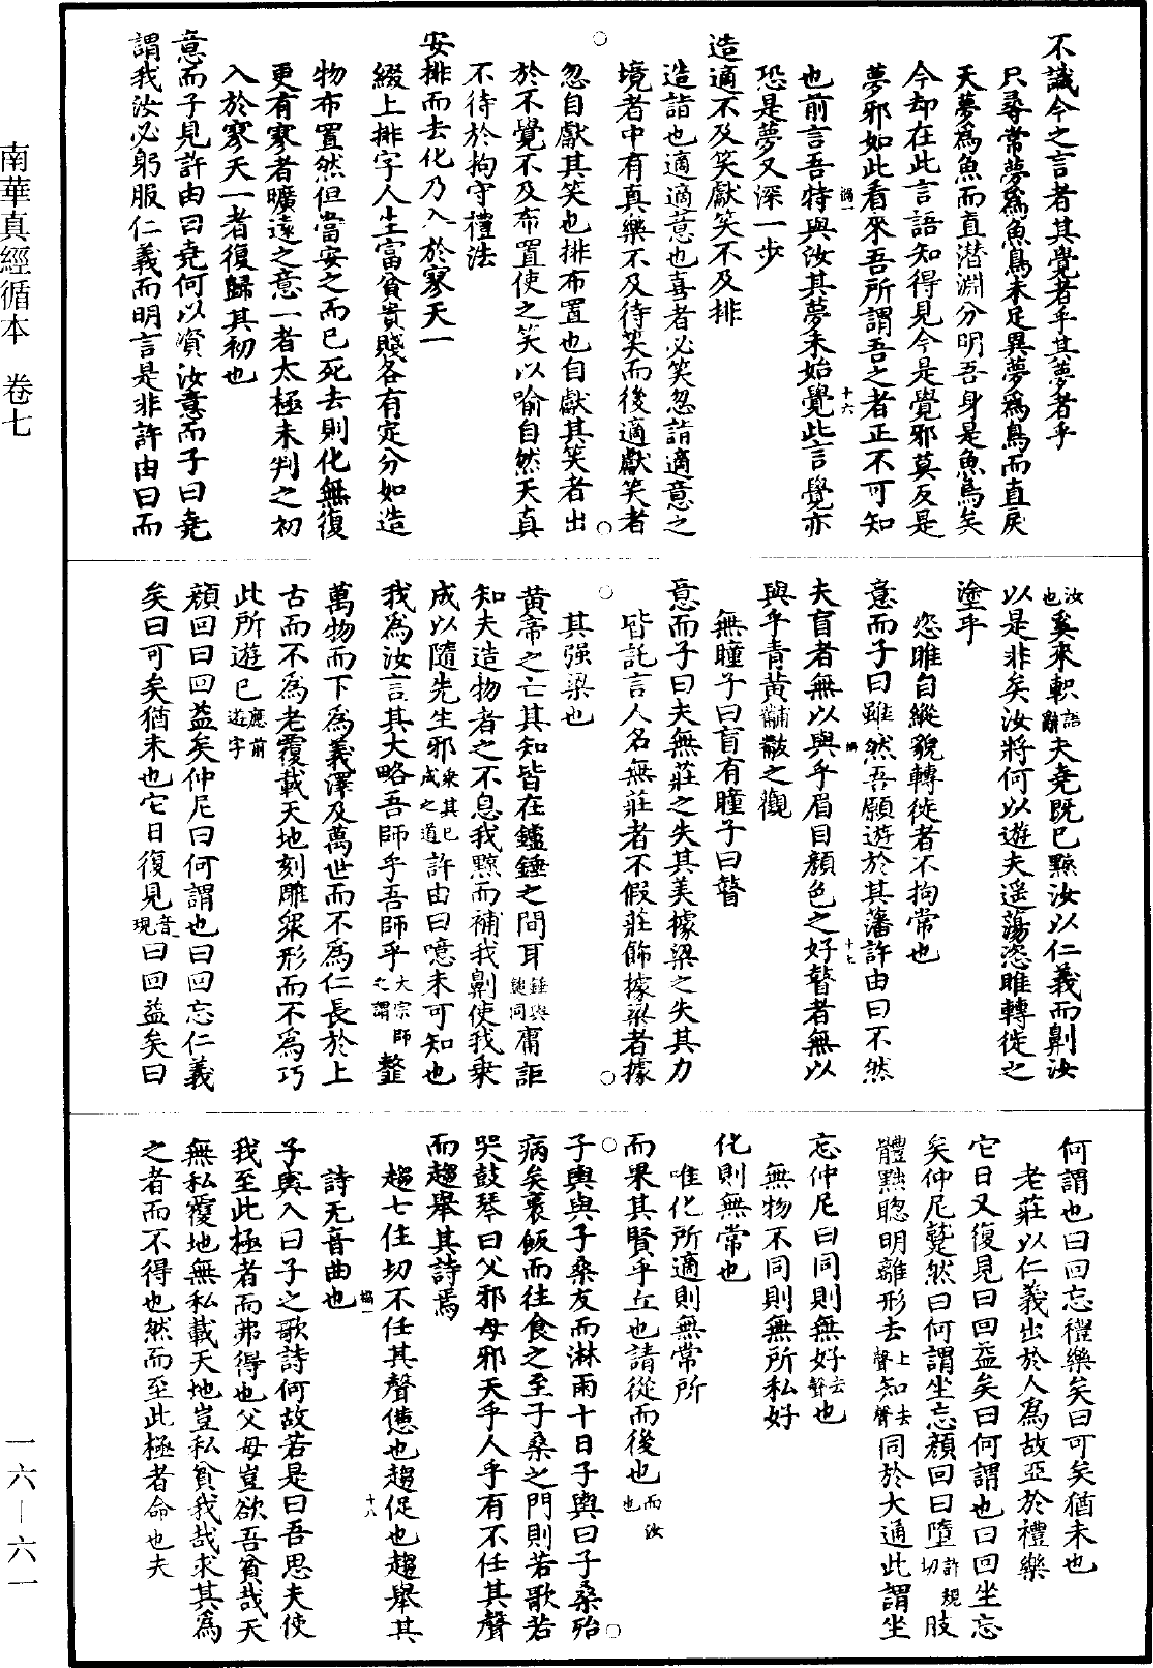 不識今之言者其覺者乎其夢者乎
只尋常夢爲魚鳥未足異夢爲鳥而直戾
天夢爲魚而直潜淵分明吾身是魚鳥矣
今却在此言語知得見今是覺邪莫反是
夢邪如此看來吾所謂吾之者正不可知
也前言吾特與汝其夢未始覺此言覺亦
恐是夢又深一步
造適不及笑獻笑不及排
造詣也適適意也喜者必笑忽詣適意之
境者中有真樂不及待笑而後適獻笑者
忽自獻其笑也排布置也自獻其笑者出
於不覺不及布置使之笑以喻自然天真
不待於拘守禮法
安排而去化乃入於寥天一
綴上排字人生富貧貴賤各有定分如造
物布置然但當安之而已死去則化無復
更有寥者曠遠之意一者太極未判之初
入於寥天一者復歸其初也
意而子見許由曰堯何以資汝意而子曰堯
謂我汝必躬服仁義而明言是非許由曰而
汝也奚來軹語辭夫堯既已黥汝以仁義而劓汝
以是非矣汝將何以遊夫遥蕩恣睢轉徙之
塗乎
恣睢自縱貌轉徙者不拘常也
意而子曰雖然吾願遊於其藩許由曰不然
夫盲者無以與乎眉目顏色之好瞽者無以
與乎青黄黼黻之觀
無瞳子曰盲有瞳子曰瞽
意而子曰夫無莊之失其美據梁之失其力
皆託言人名無莊者不假莊飾據梁者據
其强梁也
黄帝之亡其知皆在鑪錘之間耳錘與鎚同庸詎
知夫造物者之不息我黥而補我劓使我乗
成以隨先生邪乗其已成之道許由曰噫未可知也
我為汝言其大略吾師乎吾師乎大宗師之謂𩐎
萬物而不爲義澤及萬世而不爲仁長於上
古而不為老覆載天地刻雕衆形而不為巧
此所遊已應前遊字
顏回曰回益矣仲尼曰何謂也曰回忘仁義
矣曰可矣猶未也它日復見音現曰回益矣曰
何謂也曰回忘禮樂矣曰可矣猶未也
老莊以仁義出於人為故亞於禮樂
它日又復見曰回益矣曰何謂也曰回坐忘
矣仲尼蹵然曰何謂坐忘顏回曰墮許規切肢
體黜聦明離形去上聲知去聲同於大通此謂坐
忘仲尼曰同則無好去聲也
無物不同則無所私好
化則無常也
唯化所適則無常所
而果其賢乎丘也請從而後也而汝也
子輿與子桑友而淋雨十日子輿曰子桑殆
病矣裹飯而往食之至子桑之門則若歌若
哭鼓琴曰父邪母邪天乎人乎有不任其聲
而趨舉其詩焉
趨七住切不任其聲憊也趨促也趨舉其
詩无音曲也
子輿入曰子之歌詩何故若是曰吾思夫使
我至此極者而弗得也父母豈欲吾貧哉天
無私覆地無私載天地豈私貧我哉求其為
之者而不得也然而至此極者命也夫
南華真經循本 卷七
一六—六一